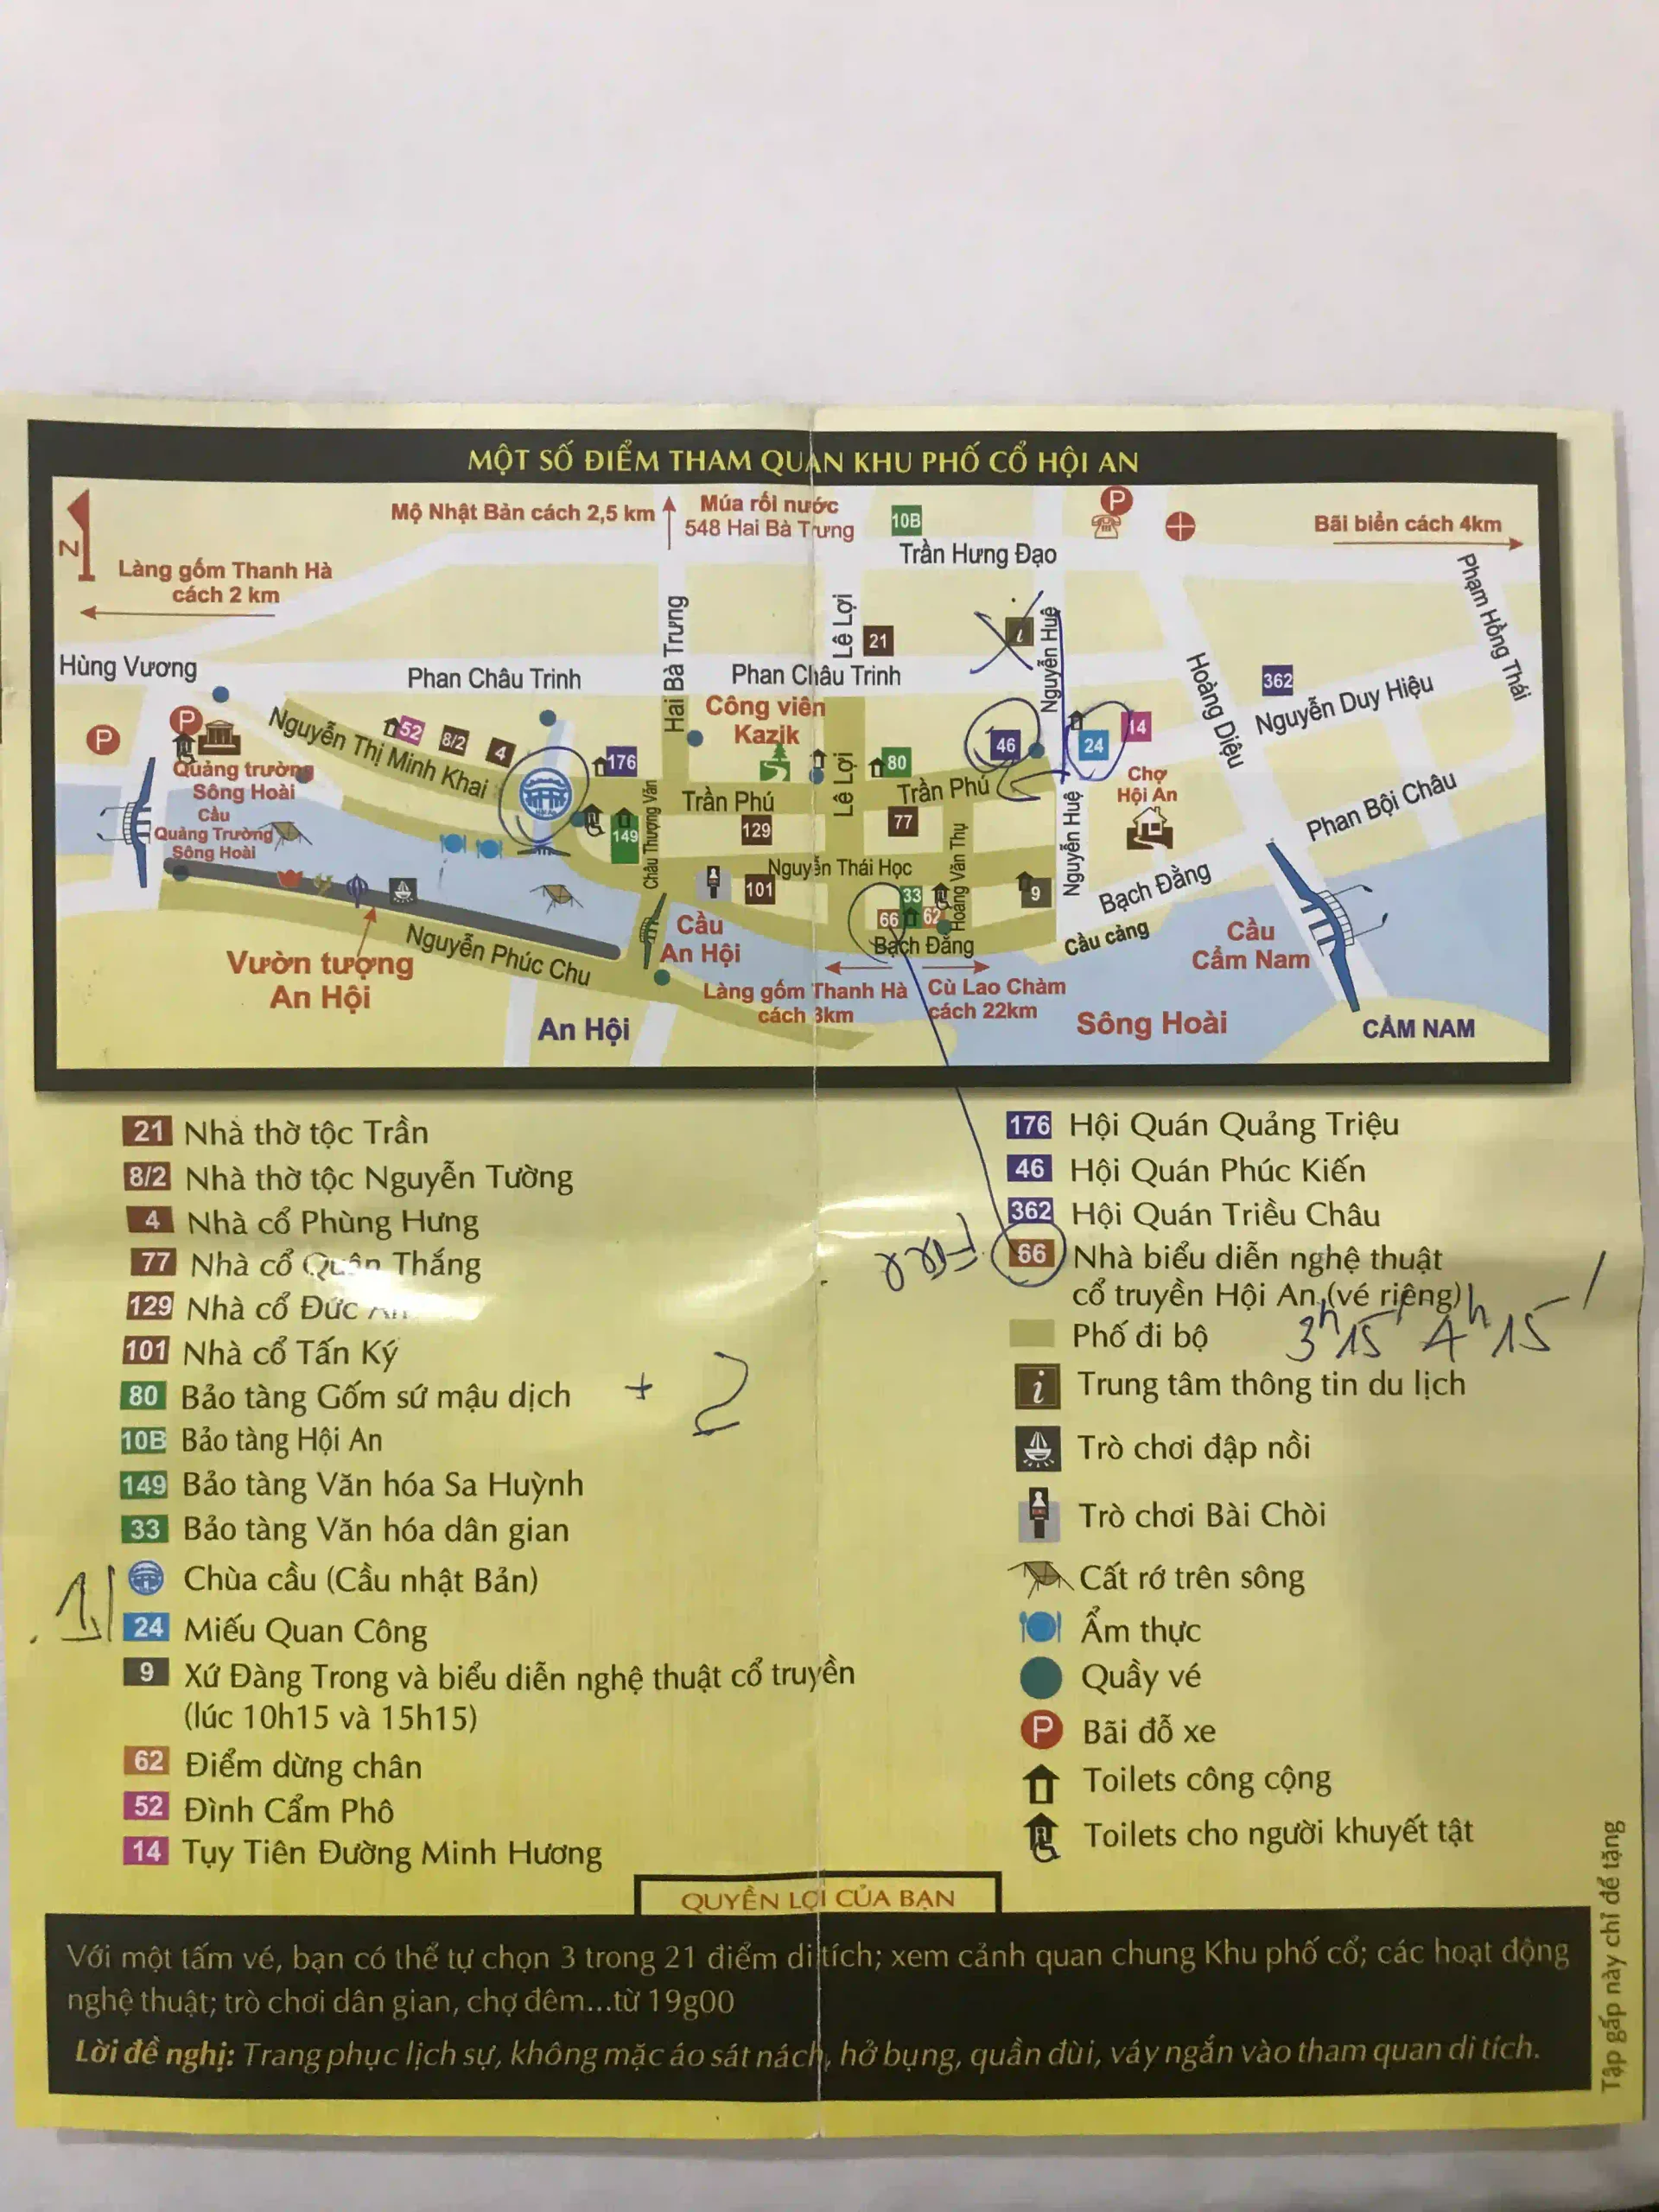 MỘT SỐ ĐIỂM THAM QUAN KHU PHỐ CỔ HỘI AN
N
Mộ Nhật Bản cách 2,5 km
Múa rối nước
548 Hai Bà Trưng
10B
Trần Hưng Đạo
P
Bãi biển cách 4km
Làng gốm Thanh Hà
cách 2 km
Phạm Hồng Thái
Hùng Vương
Phan Châu Trinh
Hai Bà Trưng
Lê Lợi
21
Phan Châu Trinh
i
Nguyễn Huệ
Hoàng Diệu
362
Nguyễn Duy Hiệu
P
P
Nguyễn Thị Minh Khai
52
8/2
4
176
Công viên
Kazik
Lê Lợi
80
46
24
14
Quảng trường
Sông Hoài
Cầu
Quảng Trường
Sông Hoài
149
Châu Thượng Văn
Trần Phú
129
Trần Phú
77
Chợ
Hội An
Phan Bội Châu
Nguyễn Thái Học
101
Hoàng Văn Thụ
Nguyễn Huệ
33
66
62
9
Bạch Đằng
Bạch Đằng
Nguyễn Phúc Chu
Vườn tượng
An Hội
Cầu
An Hội
Cầu cảng
Cầu
Cẩm Nam
Làng gốm Thanh Hà
cách 3km
Cù Lao Chàm
cách 22km
An Hội
Sông Hoài
CẨM NAM
21 Nhà thờ tộc Trần
8/2 Nhà thờ tộc Nguyễn Tường
4 Nhà cổ Phùng Hưng
77 Nhà cổ Quân Thắng
129 Nhà cổ Đức An
101 Nhà cổ Tấn Ký
80 Bảo tàng Gốm sứ mậu dịch
+ 2
10B Bảo tàng Hội An
149 Bảo tàng Văn hóa Sa Huỳnh
33 Bảo tàng Văn hóa dân gian
1
Chùa cầu (Cầu nhật Bản)
24 Miếu Quan Công
9 Xứ Đàng Trong và biểu diễn nghệ thuật cổ truyền
(lúc 10h15 và 15h15)
62 Điểm dừng chân
52 Đình Cẩm Phô
14 Tụy Tiên Đường Minh Hương
176 Hội Quán Quảng Triệu
46 Hội Quán Phúc Kiến
362 Hội Quán Triều Châu
66 Nhà biểu diễn nghệ thuật
cổ truyền Hội An (vé riêng)
3h15' 4h15'
Phố đi bộ
i Trung tâm thông tin du lịch
Trò chơi đập nồi
Trò chơi Bài Chòi
Cất rớ trên sông
Ẩm thực
Quầy vé
P Bãi đỗ xe
Toilets công cộng
Toilets cho người khuyết tật
QUYỀN LỢI CỦA BẠN
Với một tấm vé, bạn có thể tự chọn 3 trong 21 điểm di tích; xem cảnh quan chung Khu phố cổ; các hoạt động
nghệ thuật; trò chơi dân gian, chợ đêm...từ 19g00
Lời đề nghị: Trang phục lịch sự, không mặc áo sát nách, hở bụng, quần đùi, váy ngắn vào tham quan di tích.
Tập gấp này chỉ để tặng